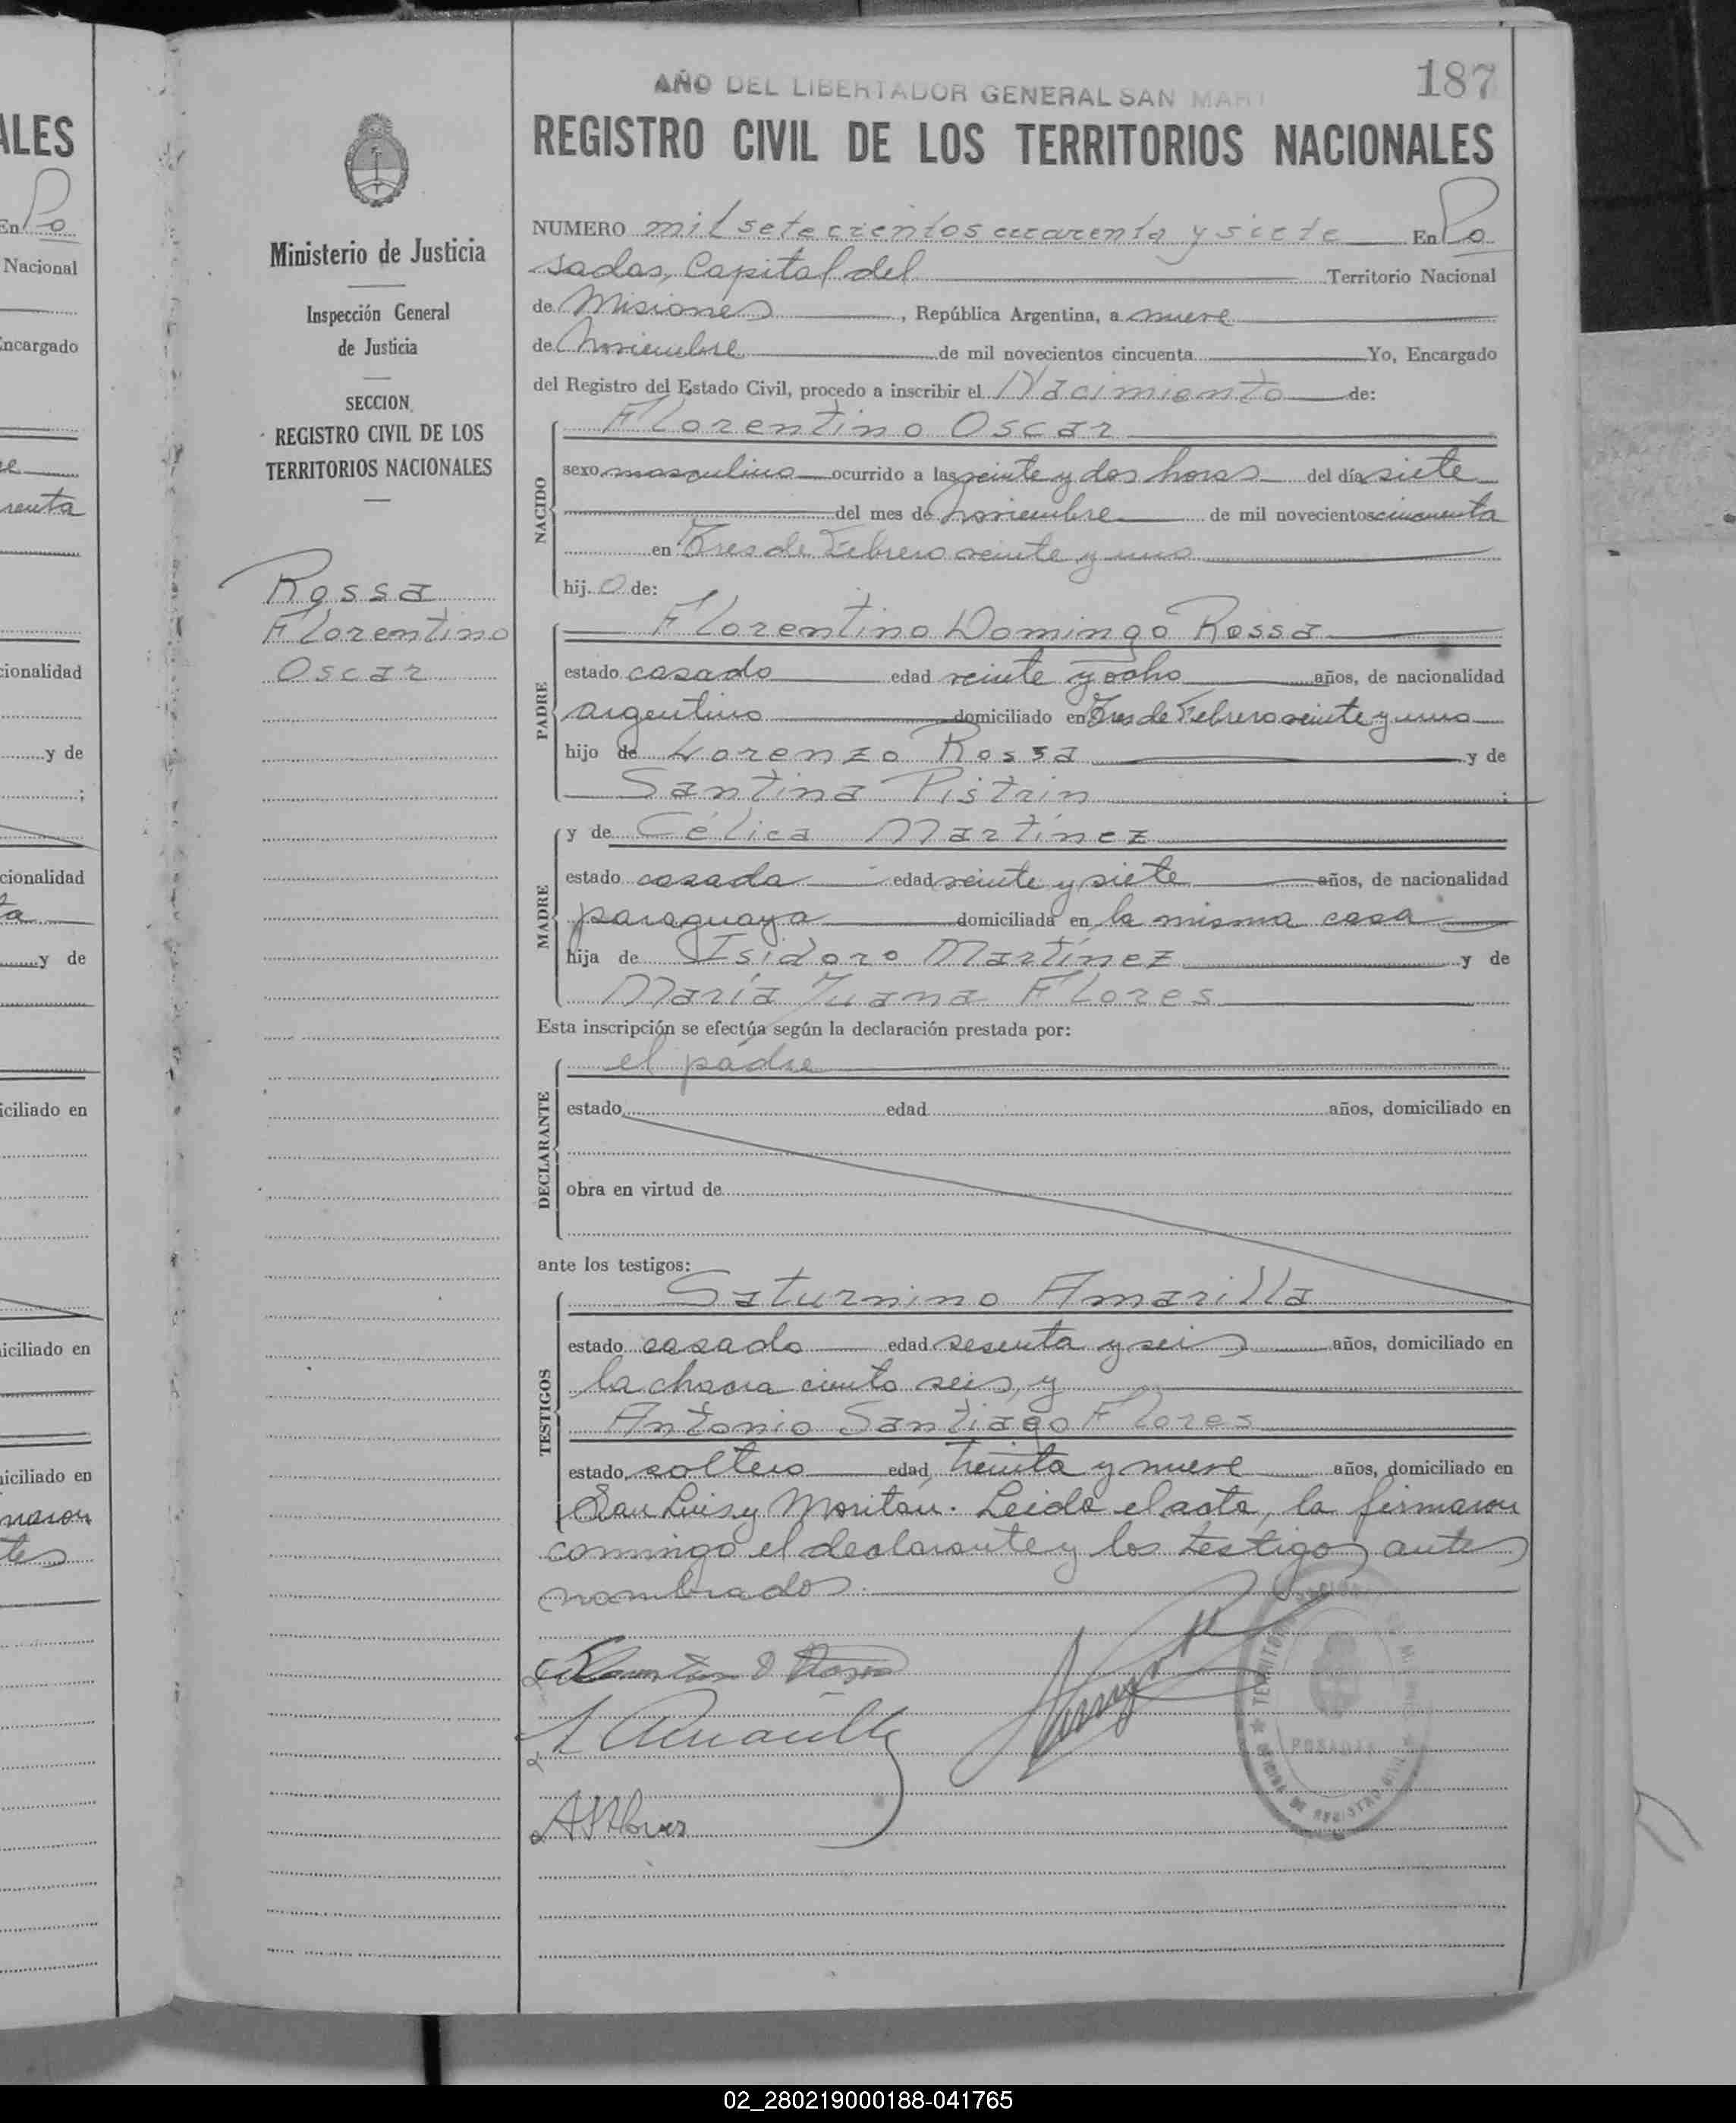 AÑO DEL LIBERTADOR GENERAL SAN MART
187
REGISTRO CIVIL DE LOS TERRITORIOS NACIONALES
Ministerio de Justicia
Inspección General
de Justicia
SECCION
REGISTRO CIVIL DE LOS
TERRITORIOS NACIONALES
Rossa
Florentino
Oscar
NUMERO mil setecientos cuarenta y siete En Po
sadas, Capital del Territorio Nacional
de Misiones, República Argentina, a nueve
de Noviembre de mil novecientos cincuenta Yo, Encargado
del Registro del Estado Civil, procedo a inscribir el Nacimiento de:
NACIDO
Florentino Oscar
sexo masculino ocurrido a las veinte y dos horas del día siete
del mes de noviembre de mil novecientos cincuenta
en Tres de Febrero veinte y uno
hij o de:
PADRE
Florentino Domingo Rossa
estado casado edad veinte y ocho años, de nacionalidad
argentino domiciliado en Tres de Febrero veinte y uno
hijo de Lorenzo Rossa y de
Santina Pistrin ;
MADRE
y de Célica Martínez
estado casada edad veinte y siete años, de nacionalidad
paraguaya domiciliada en la misma casa
hija de Isidoro Martínez y de
María Juana Flores
Esta inscripción se efectúa según la declaración prestada por:
DECLARANTE
el padre
estado edad años, domiciliado en
obra en virtud de
ante los testigos:
TESTIGOS
Saturnino Amarilla
estado casado edad sesenta y seis años, domiciliado en
la chacra ciento seis, y
Antonio Santiago Flores
estado soltero edad treinta y nueve años, domiciliado en
San Luis y Moritan. Leida el acta, la firmaron
conmigo el declarante y los testigos antes
nombrados.
Florentino D Rossa
S Amarilla
A S Flores
POSADAS
ALES
En Po
Nacional
Encargado
renta
cionalidad
y de
;
cionalidad
y de
iciliado en
iciliado en
iciliado en
maron
tes
02_280219000188-041765